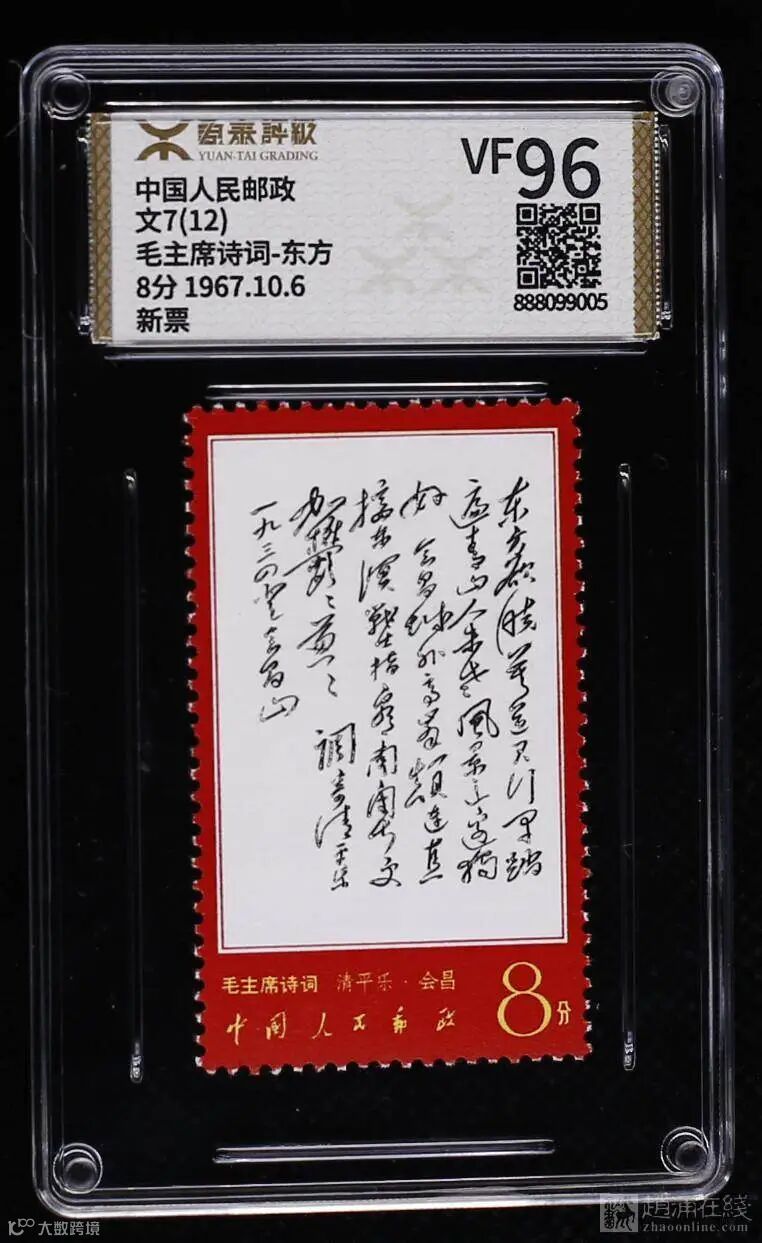 源泰評級
YUAN-TAI GRADING
VF96
中国人民邮政
文7(12)
毛主席诗词-东方
8分 1967.10.6
新票
888099005
东方欲晓莫道君行早踏
遍青山人未老風景这边独
好 会昌城外高峯颠连直
接东溟戰士指看南粤更
加鬱〻葱〻 調寄清平乐
一九三四登会昌山
毛主席诗词 清平乐·会昌
中国人民邮政
8分
大数跨境
趙涌在綫
zhaoonline.com